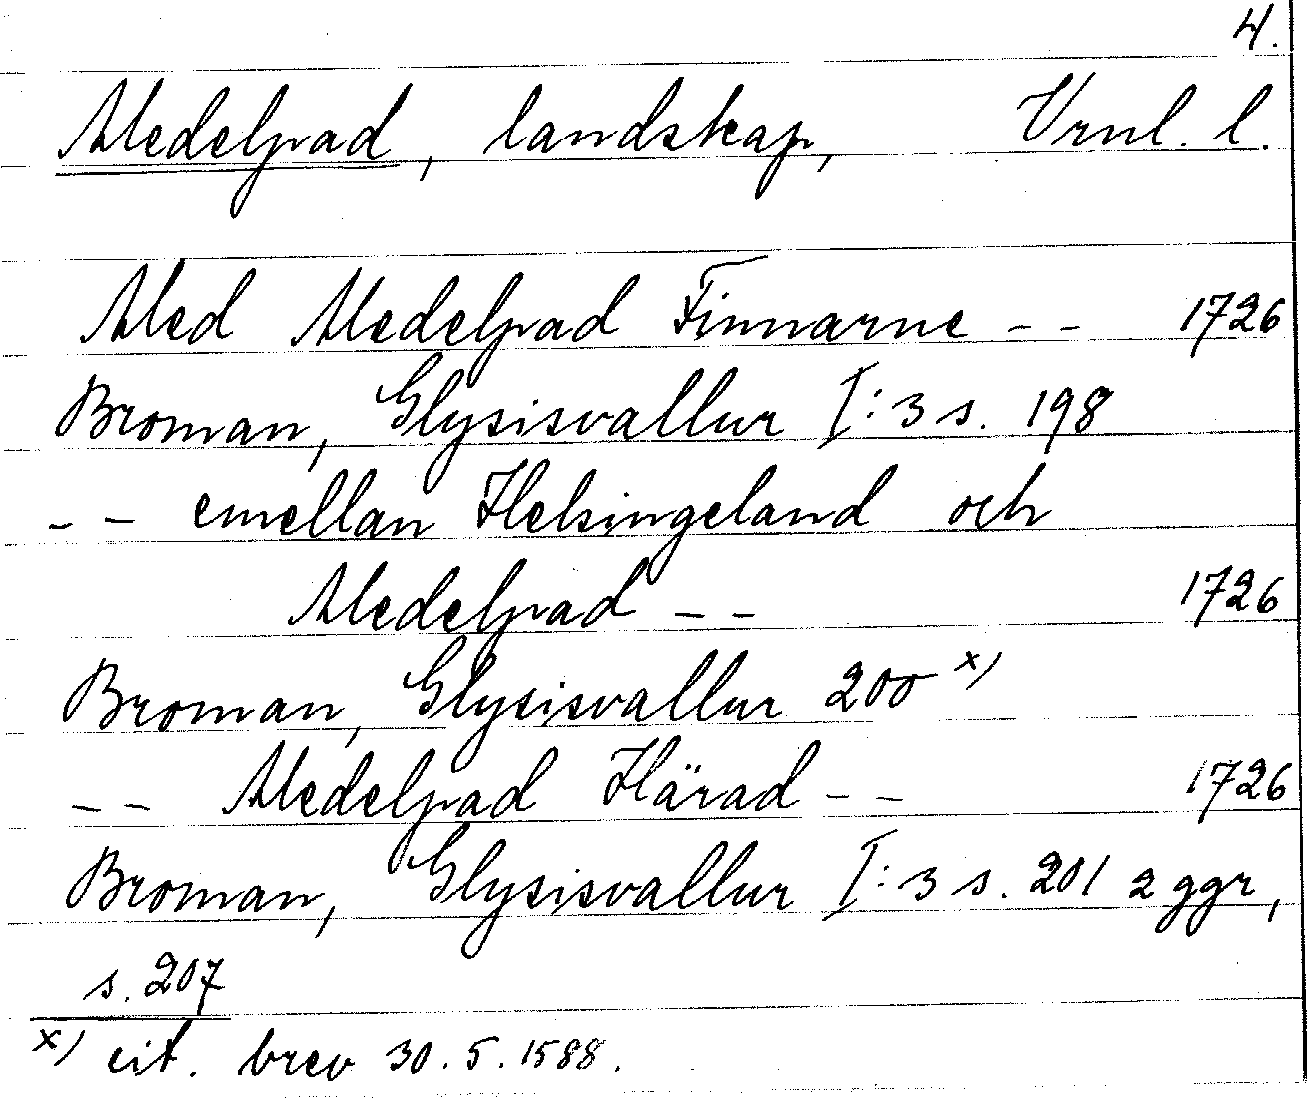 4.
Medelpad, landskap, Vrnl. l.
Med Medelpad Finnarne - - 1726
Broman, Glysisvallur I:3 s. 198
- - emellan Helsingeland och
Medelpad - - 1726
Broman, Glysisvallur 200 x)
- - Medelpad Härad - - 1726
Broman, Glysisvallur I:3 s. 201 2 ggr,
s. 207
x) cit. brev 30.5.1588.